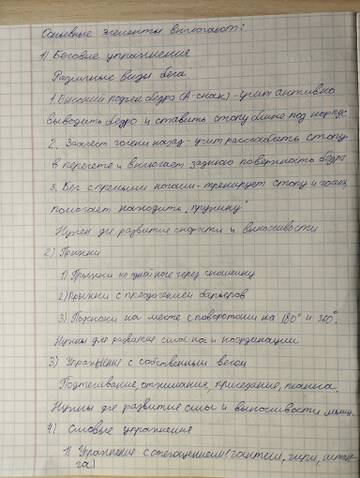 Основные элементы включают:
1) Беговые упражнения
Различные виды бега
1. Высокий подъём бедра (А-скип) - учит активно
выводить бедро и ставить стопу ближе под корпус
2. Захлест голени назад - учит расслаблять стопу
в перелете и включает заднюю поверхность бедра
3. Бег с прямыми ногами - тренирует стопу и голень,
помогает находить "пружину"
Нужен для развития скорости и выносливости
2) Прыжки
1) Прыжки на через скакалку
2) Прыжки с преодолением барьеров
3) на месте с поворотами на 180° и 360°.
Нужны для развития силы ног и координации
3) Упражнения с собственным весом
Подтягивание, отжимание, приседание, планка.
Нужны для развития силы и выносливости мышц.
4) Силовые упражнения
1) Упражнение с отягощением (гантели, гири, штан-
га)